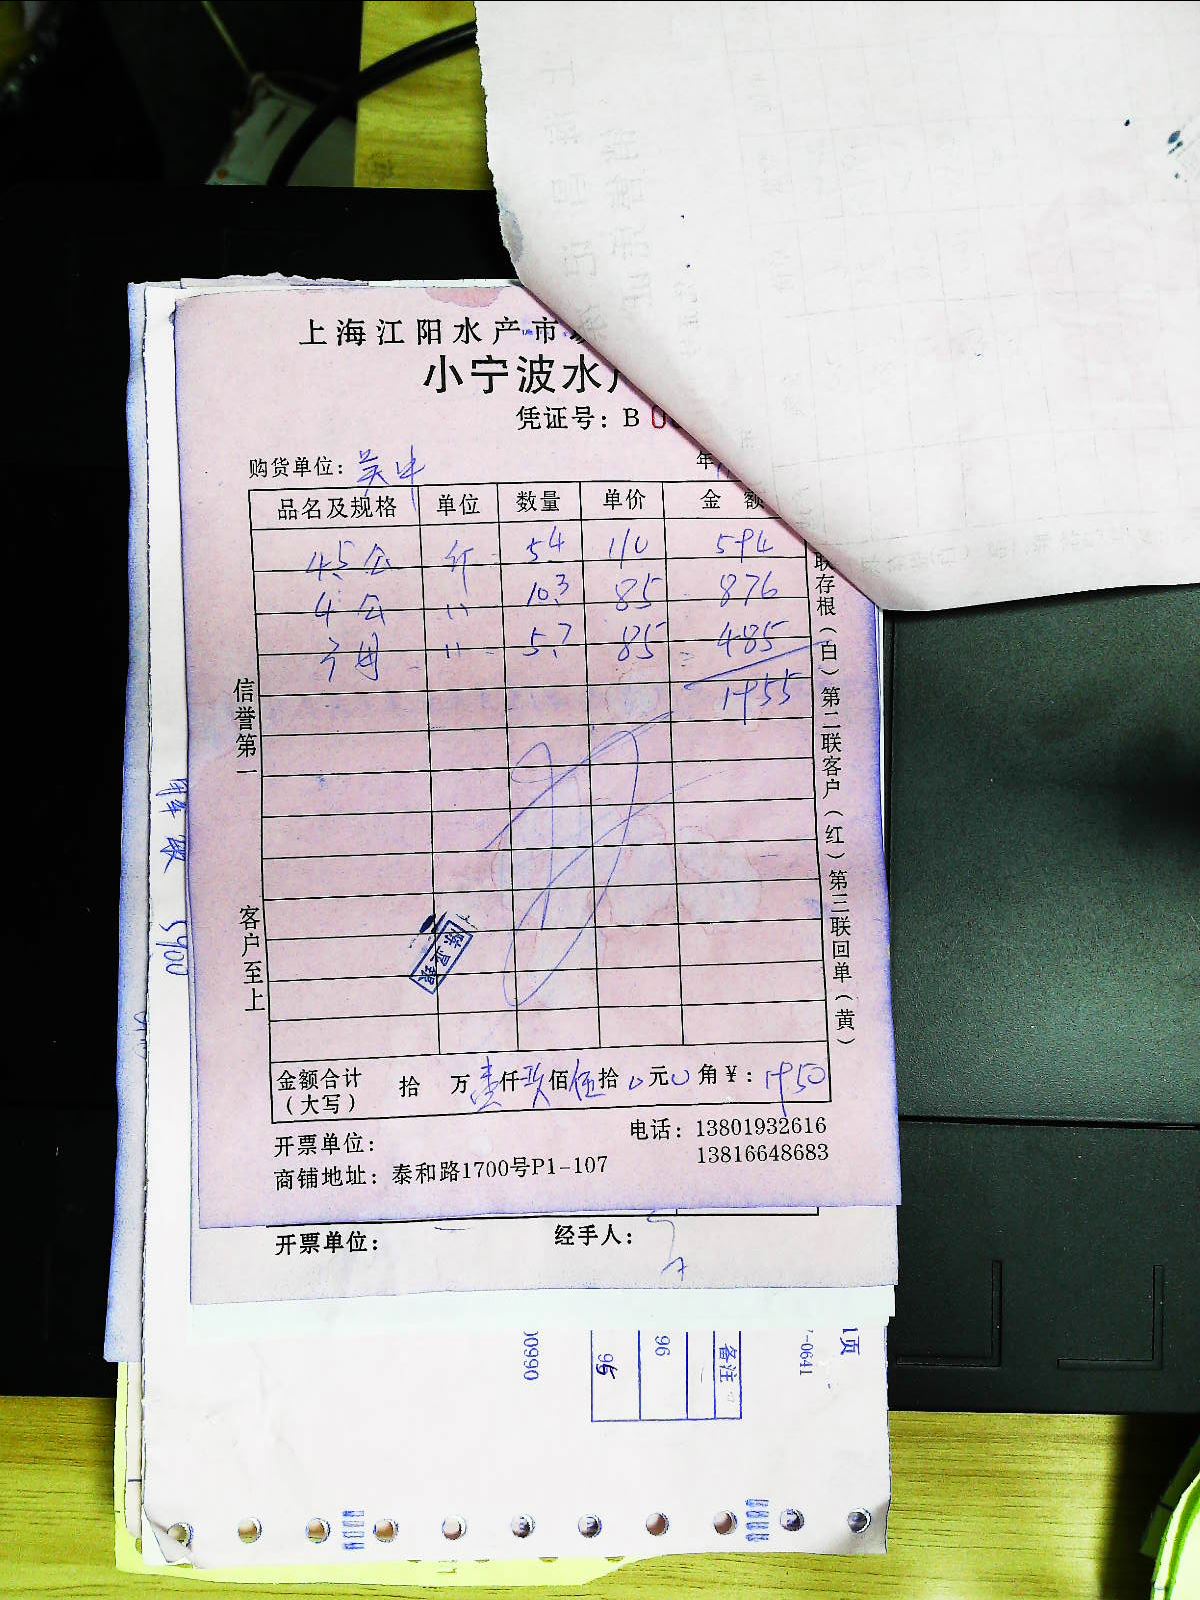 上海江阳水产市
小宁波水
凭证号：B 0
购货单位：吴中 年
品名及规格 单位 数量 单价 金 额
4.5公 斤 5.4 110 594
4公 〃 10.3 85 876
子母 〃 5.7 85 485
1955
信誉第一
客户至上
联存根（白）第二联客户（红）第三联回单（黄）
金额合计（大写） 拾 万壹仟玖佰伍拾0元0角¥：1950
开票单位：
电话：13801932616
13816648683
商铺地址：泰和路1700号P1-107
开票单位： 经手人：
5400
1页
-0641
备注
96
96
00990